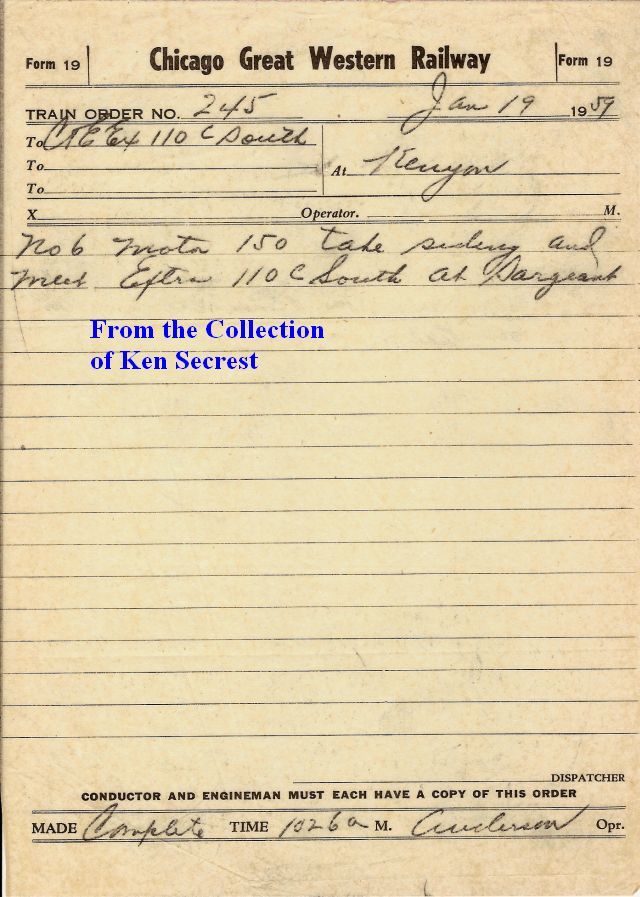 Form 19 Chicago Great Western Railway Form 19
TRAIN ORDER NO. 245 Jan 19 1959
To C&E Ex 110 C South
To At Kenyon
To
X Operator. M.
No 6 motor 150 take siding and
meet Extra 110 C South at Sargeant
From the Collection
of Ken Secrest
DISPATCHER
CONDUCTOR AND ENGINEMAN MUST EACH HAVE A COPY OF THIS ORDER
MADE Complete TIME 1026 a M. Anderson Opr.